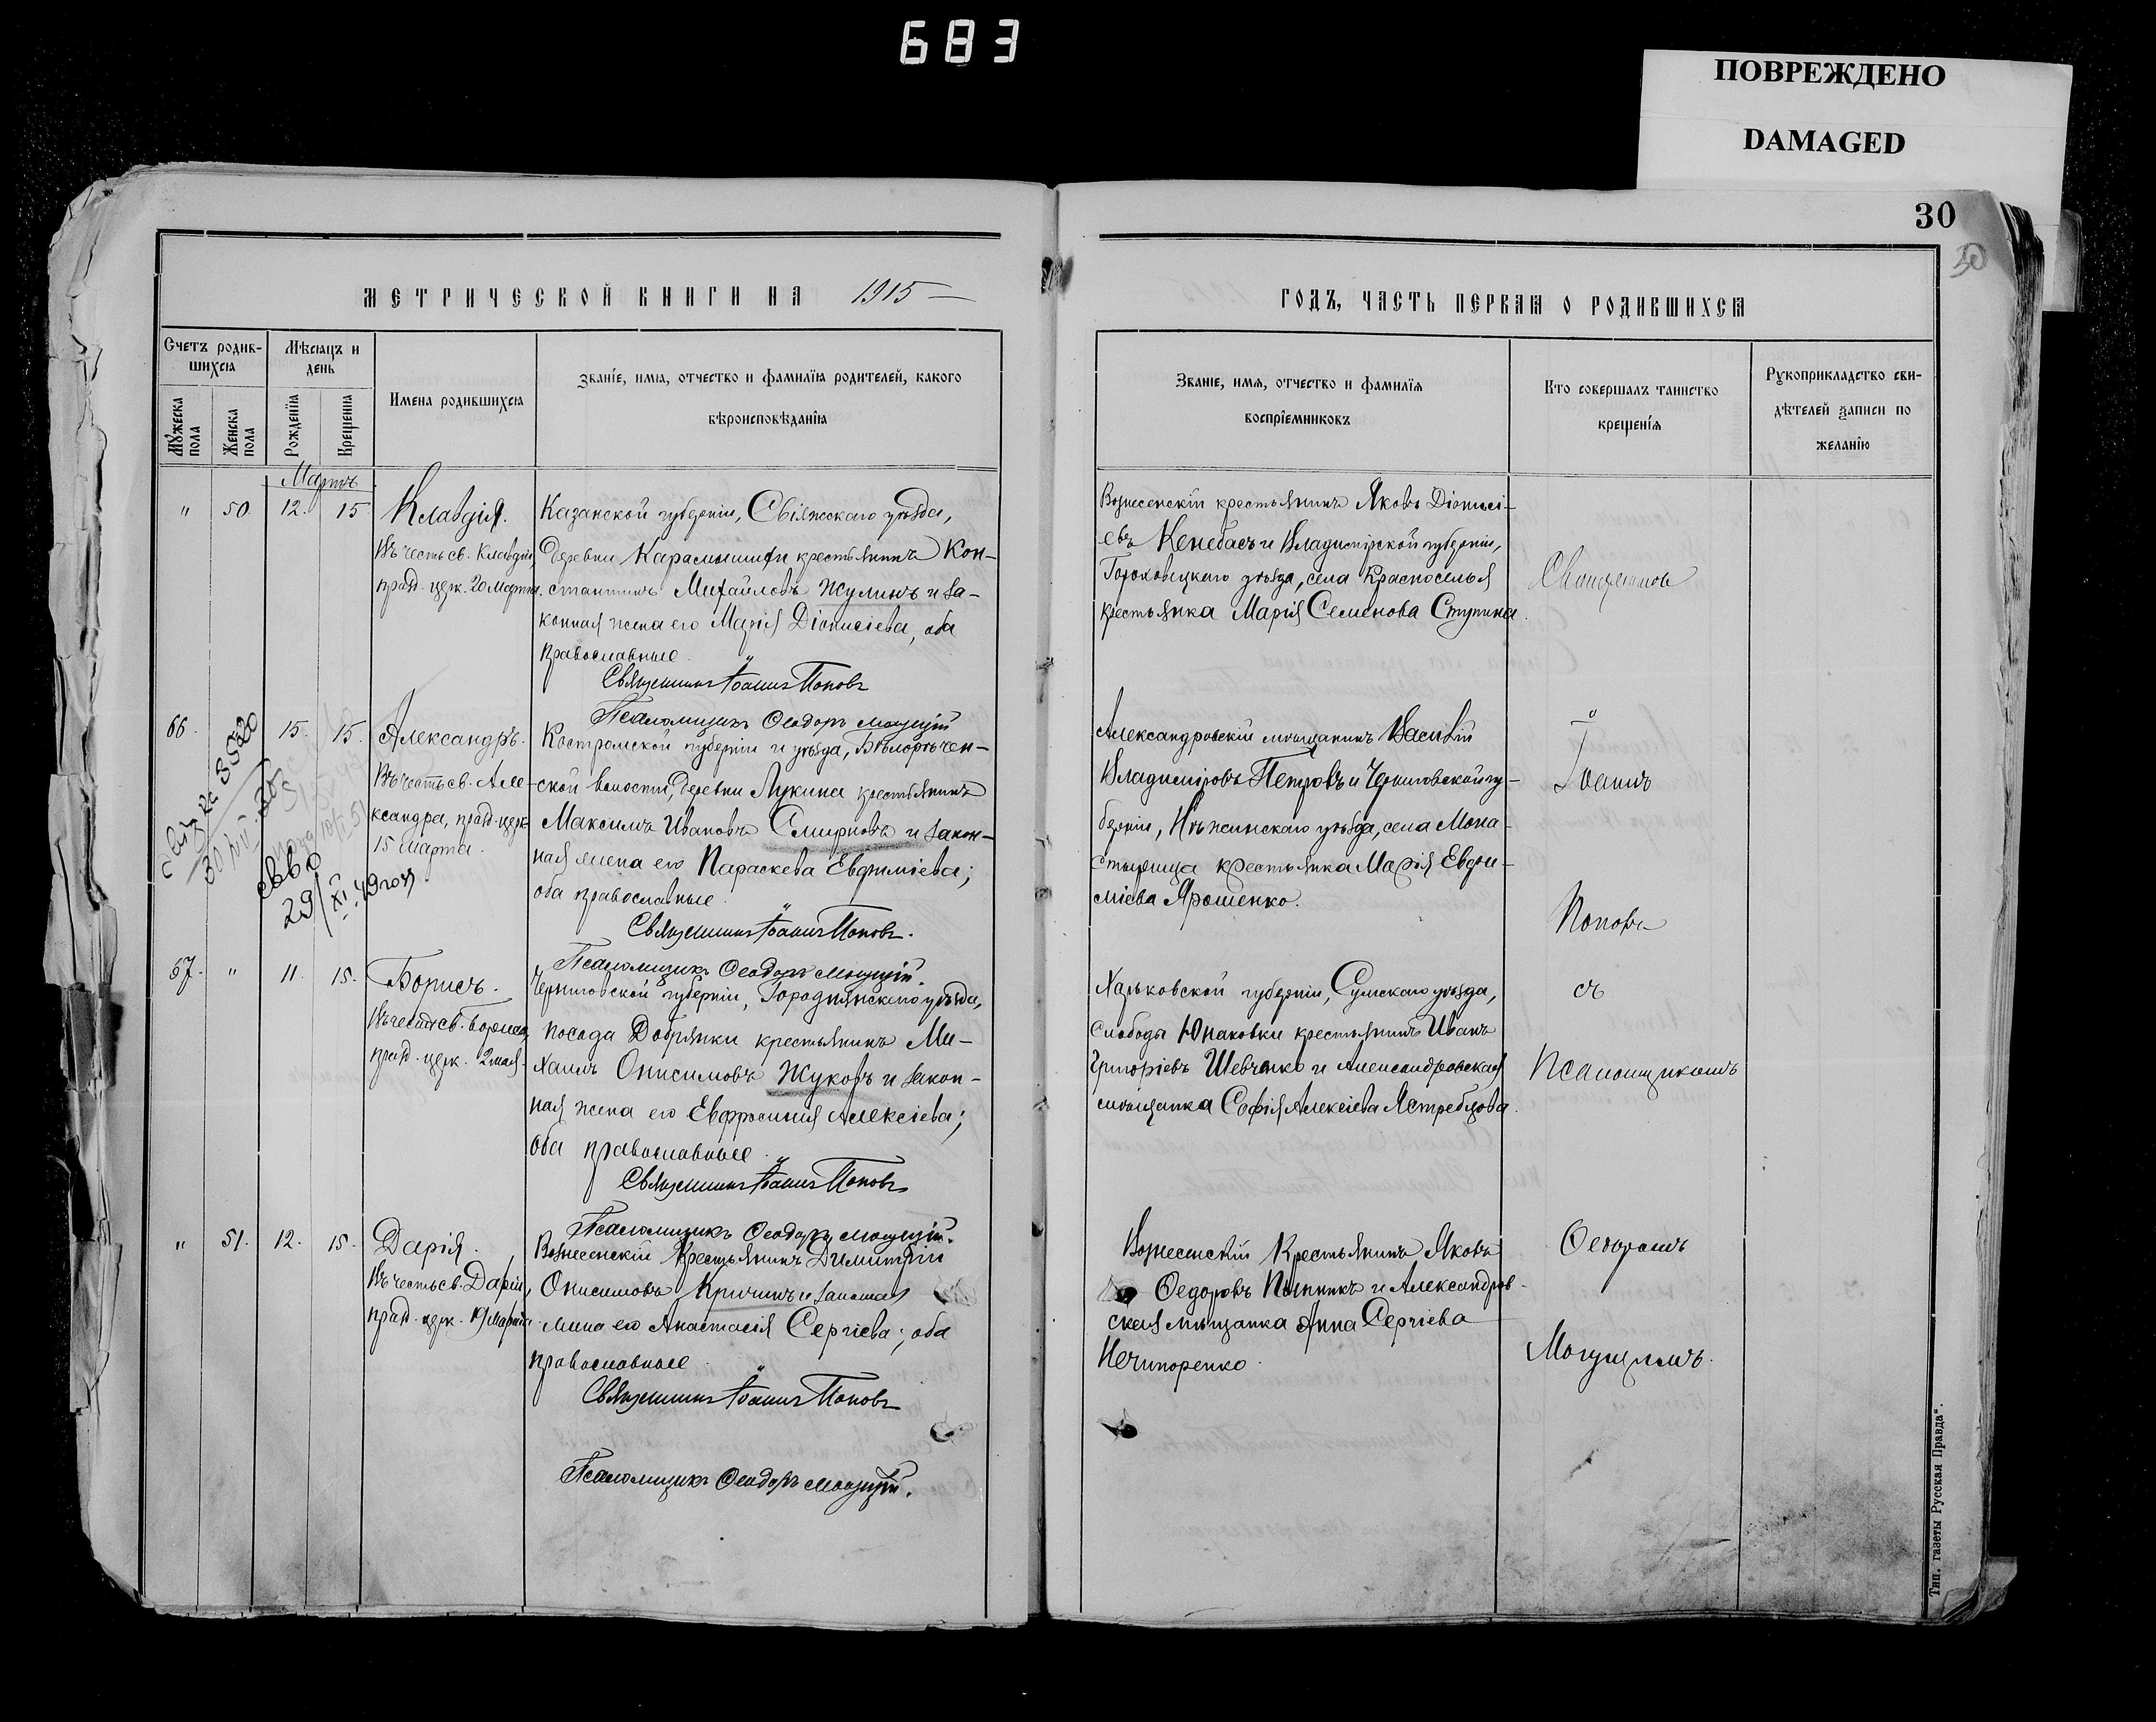 683
ПОВРЕЖДЕНО
DAMAGED
30
30
МЕТРИЧЕСКОЙ КНИГИ НА 1915
Счетъ родившихся
Мѣсяцъ и день
Мужеска пола
Женска пола
Рожденїя
Крещенія
Имена родившихся
Званіе, имя, отчество и фамилїя родителей, какого
вѣроисповѣданїя
Мартъ
" 50. 12. 15
Клавдія.
Въ честь св. Клавдіи,
празд. церк. 20 Марта.
Казанской губерніи, Свіяжскаго уѣзда,
деревни Карамышихи крестьянинъ Кон-
стантинъ Михайловъ Жулинъ и за-
конная жена его Марія Діонисіева, оба
православные.
Священникъ Іоаннъ Поповъ
Псаломщикъ Ѳеодоръ Могущій
66. 15. 15.
Александръ.
Въ честь св. Але-
ксандра, празд. церк.
15 Марта.
Костромской губерніи и уѣзда, Бѣлорѣчен-
ской волости, деревни Лукина крестьянинъ
Максимъ Ивановъ Смирновъ и закон-
ная жена его Параскева Евфиміева;
оба православные.
Священникъ Іоаннъ Поповъ.
Псаломщикъ Ѳеодоръ Могущій.
св-во
29/XI.49 года.
67. " 11. 15.
Борисъ.
Въ честь св. Бориса,
празд. церк. 2 мая.
Черниговской губерніи, Городнянскаго уѣзда,
посада Добрянки крестьянинъ Ми-
хаилъ Онисимовъ Жуковъ и закон-
ная жена его Евфросинія Алексіева;
оба православные.
Священникъ Іоаннъ Поповъ
Псаломщикъ Ѳеодоръ Могущій.
" 51. 12. 15.
Дарія.
Въ честь св. Даріи,
празд. церк. 19 марта.
Вознесенскій крестьянинъ Димитрій
Онисимовъ Кричинъ и законная
жена его Анастасія Сергіева; оба
православные.
Священникъ Іоаннъ Поповъ
Псаломщикъ Ѳеодоръ Могущій.
ГОДЪ, ЧАСТЬ ПЕРВАЯ О РОДИВШИХСЯ
Званіе, имя, отчество и фамилїя
воспрїемниковъ
Кто совершалъ таинство
крещенїя
Рукоприкладство сви-
дѣтелей записи по
желанїю
Вознесенскій крестьянинъ Яковъ Діонисі-
евъ Кенебасъ и Владимірской губерніи,
Гороховецкаго уѣзда, села Красноселья
крестьянка Марія Семенова Ступина.
Александровскій мѣщанинъ Василій
Владиміровъ Петровъ и Черниговской гу-
берніи, Нѣжинскаго уѣзда, села Мона-
стырища крестьянка Марія Евфи-
міева Ярошенко.
Харьковской губерніи, Сумскаго уѣзда,
слободы Юнаковки крестьянинъ Иванъ
Григоріевъ Шевченко и Александровская
мѣщанка Софія Алексіева Ястребцова.
Вознесенскій крестьянинъ Яковъ
Ѳедоровъ Пынникъ и Александров-
ская мѣщанка Анна Сергіева
Нечипоренко.
Священникъ
Іоаннъ
Поповъ
съ
Псаломщикомъ
Ѳеодоромъ
Могущимъ.
Тип. газеты Русская Правда".